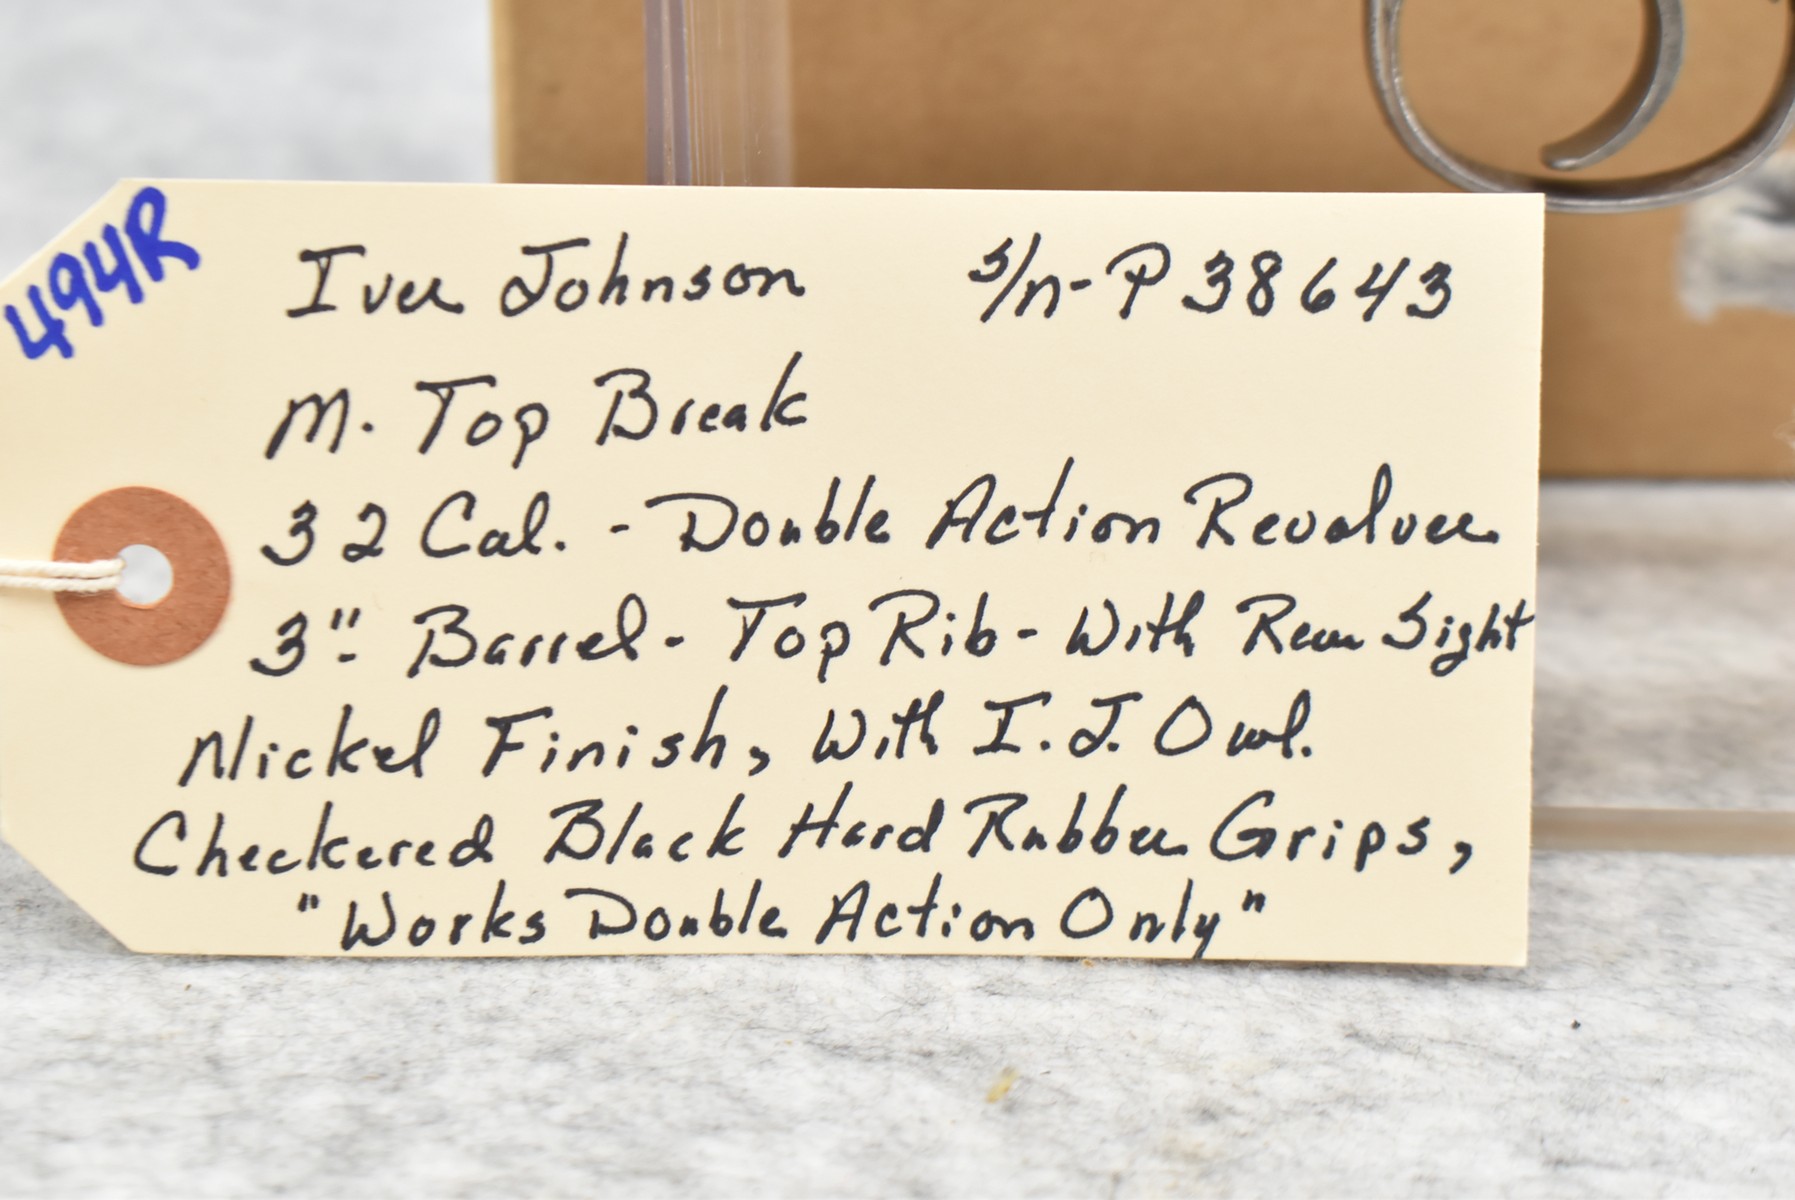 494R
Iver Johnson s/n-P38643
M. Top Break
32 Cal. - Double Action Revolver
3" Barrel - Top Rib - With Rear Sight
Nickel Finish, With I.J. Owl.
Checkered Black Hard Rubber Grips,
"Works Double Action Only"